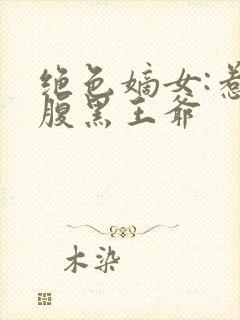 绝色嫡女:惹
腹黑王爷
木染